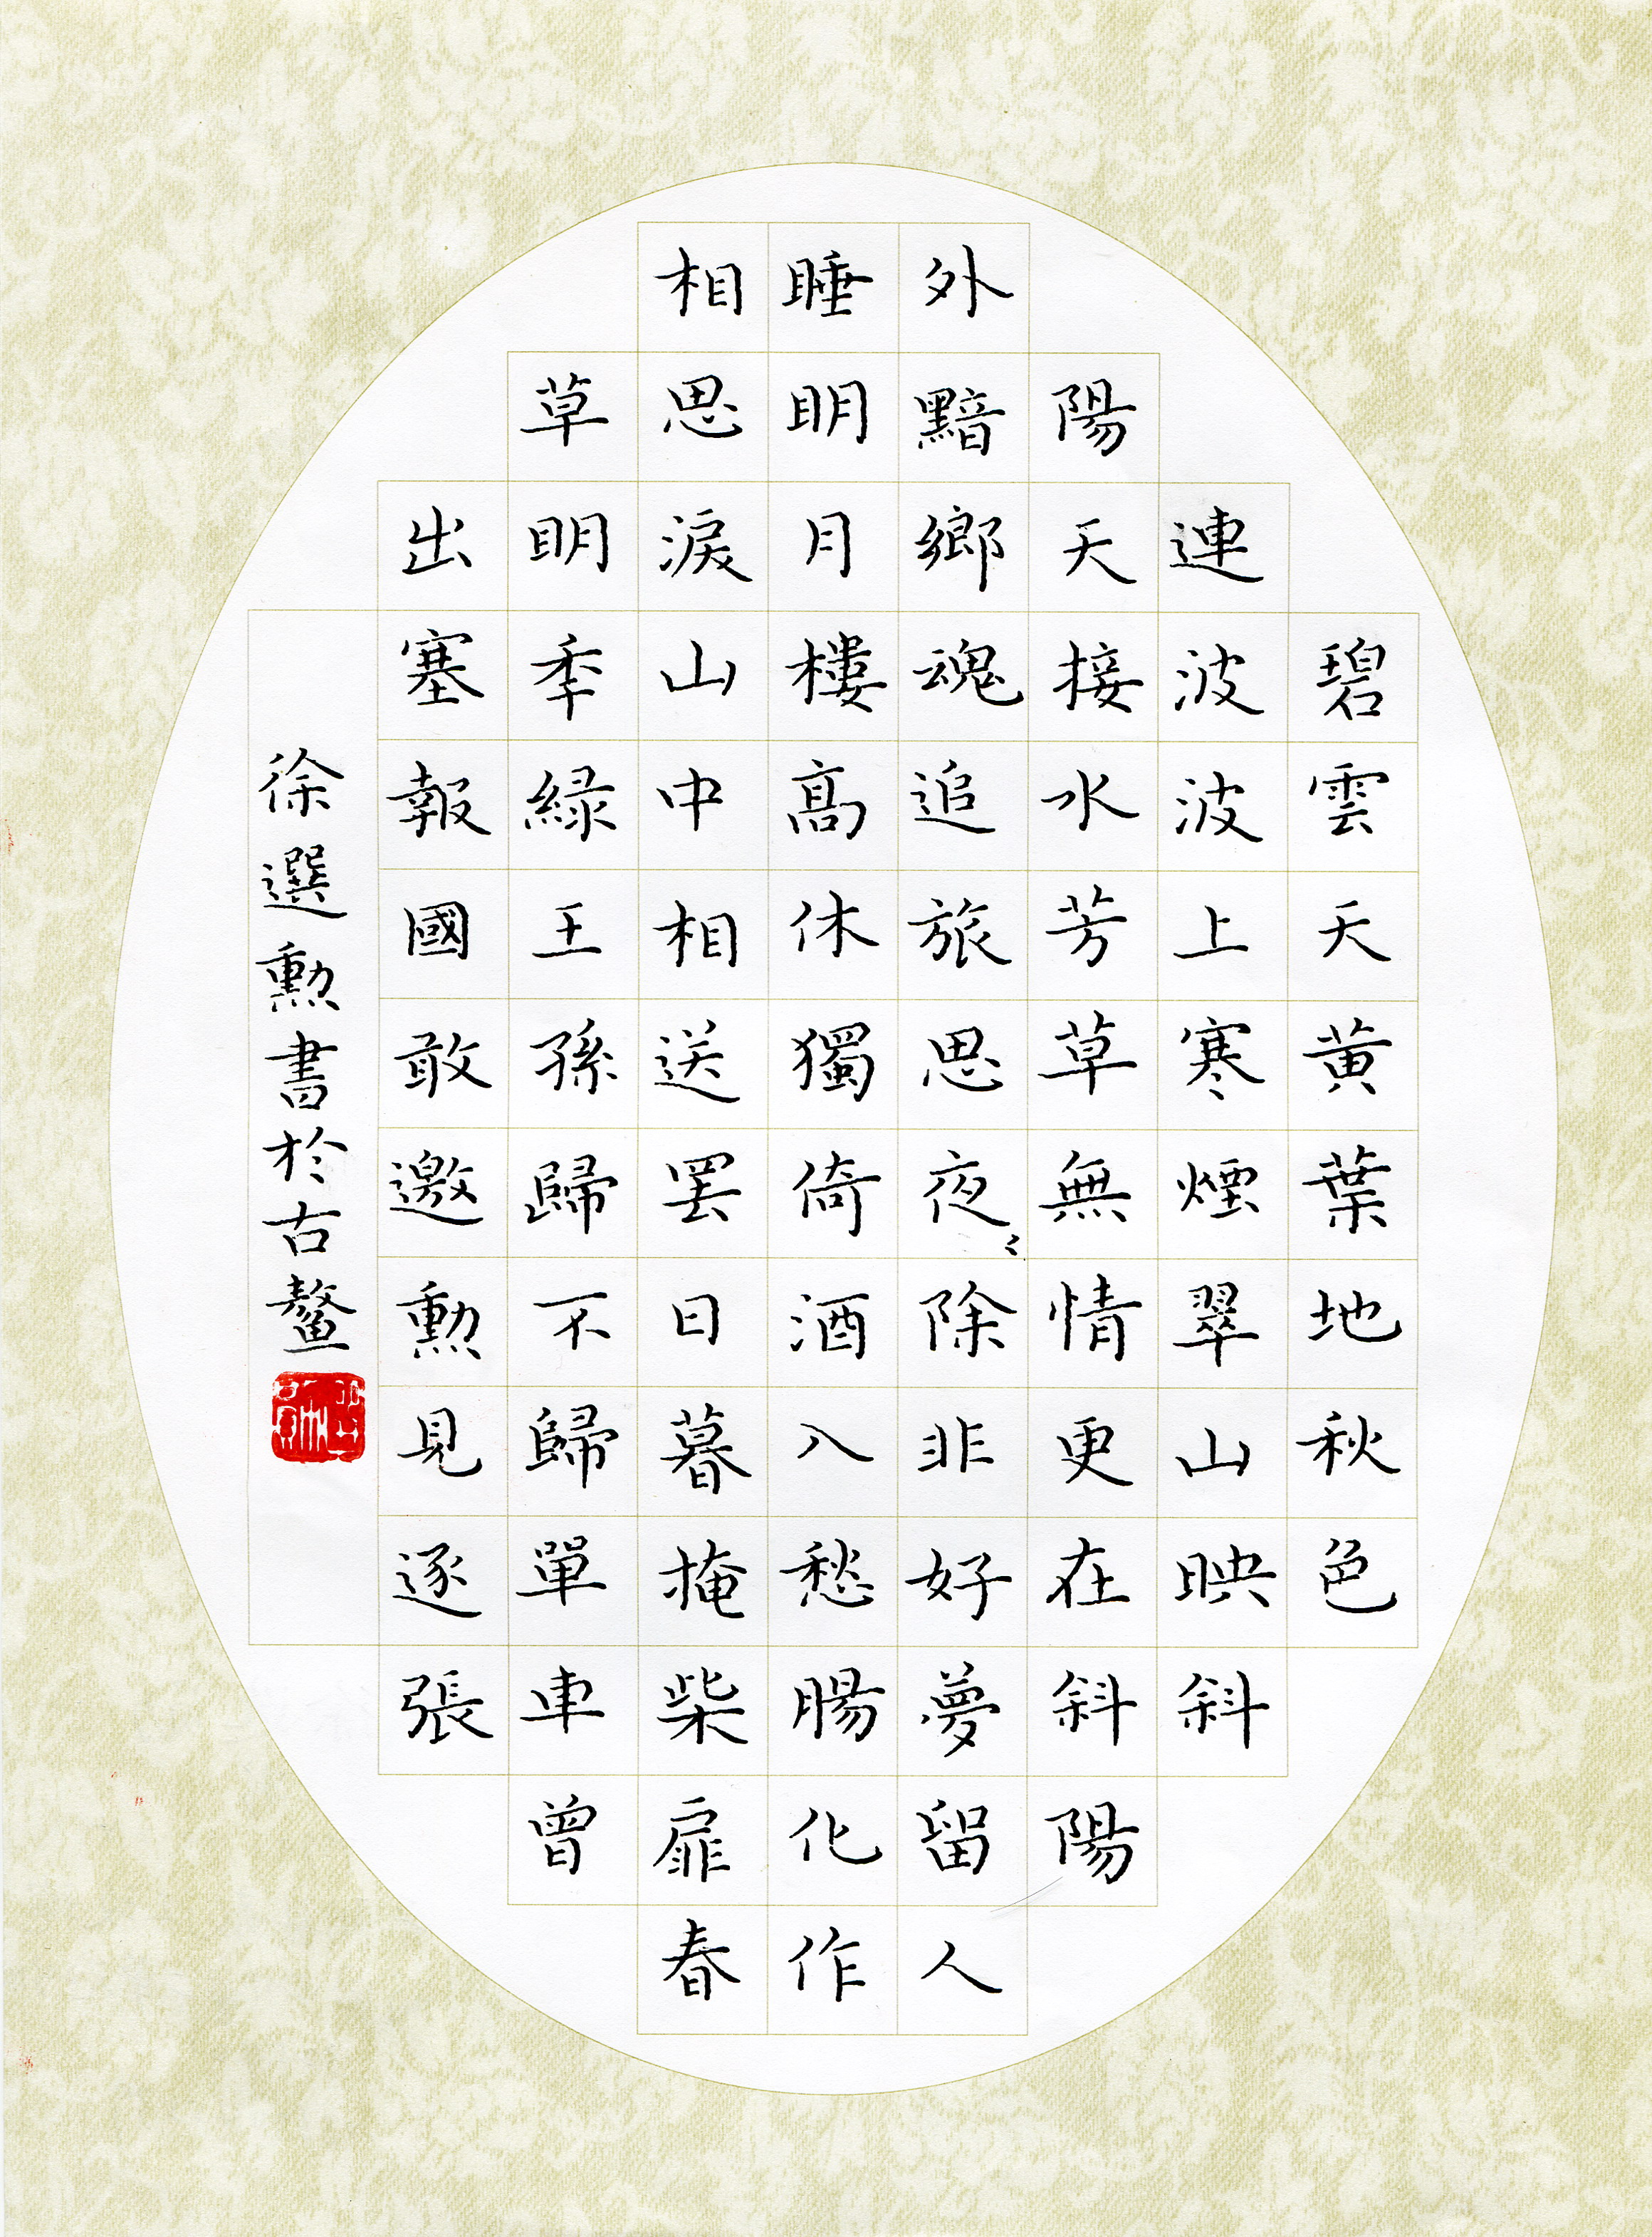 碧雲天黄葉地秋色
連波波上寒煙翠山映斜
陽天接水芳草無情更在斜陽
外黯鄉魂追旅思夜〻除非好夢留人
睡眀月樓髙休獨倚酒入愁腸化作
相思淚山中相送罷日暮掩柴扉春
草眀秊緑王孫歸不歸單車曾
出塞報國敢邀勳見逐張
徐選勳書於古鳌